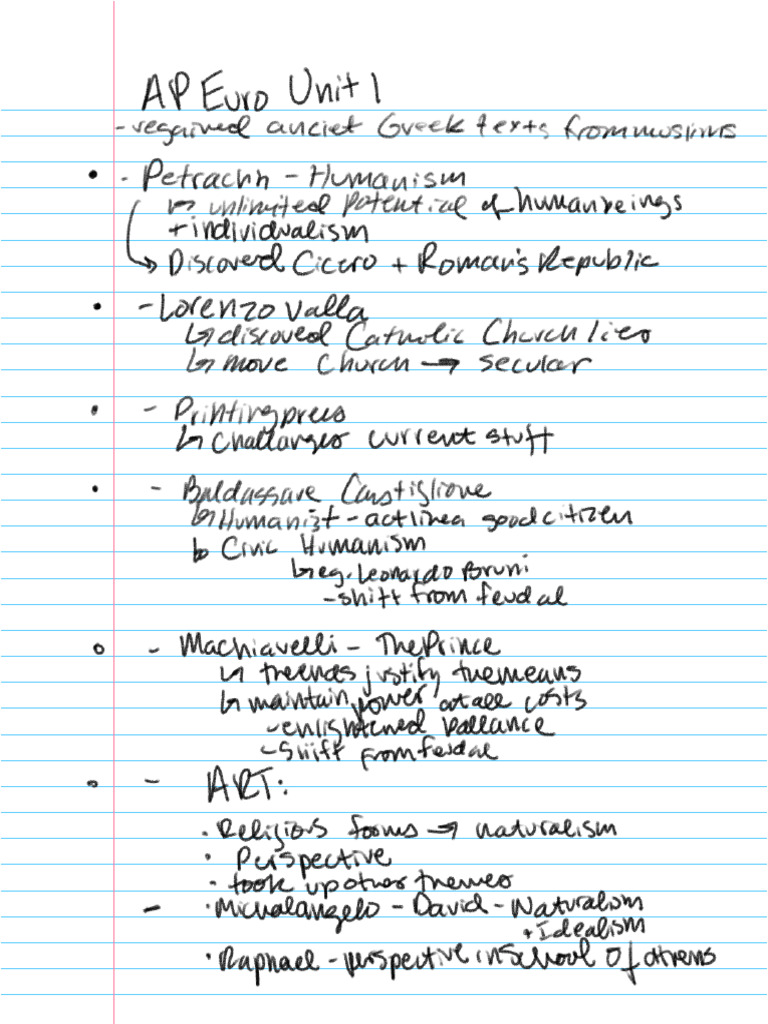 AP Euro Unit 1
- regained anciet Greek texts from muslims
• - Petrachh - Humanism
↳ unlimited potential of human beings
+ individualism
↳ Discovered Cicero + Roman's Republic
• - Lorenzo Valla
↳ discoved Catholic Church lies
↳ move Church → secular
• - Printing press
↳ Challanges current stuff
• - Baldassare Castiglione
↳ Humanist - act like a good citizen
↳ Civic Humanism
↳ eg. Leonardo Bruni
- shift from feudal
• - Machiavelli - The Prince
↳ the ends justify the means
↳ maintain power at all costs
- enlightened
- shift from feudal
• - ART:
• Religious forms → naturalism
• Perspective
• took up other themes
- • Michalangelo - David - Naturalism
+ Idealism
• Raphael - perspective in School Of Athens